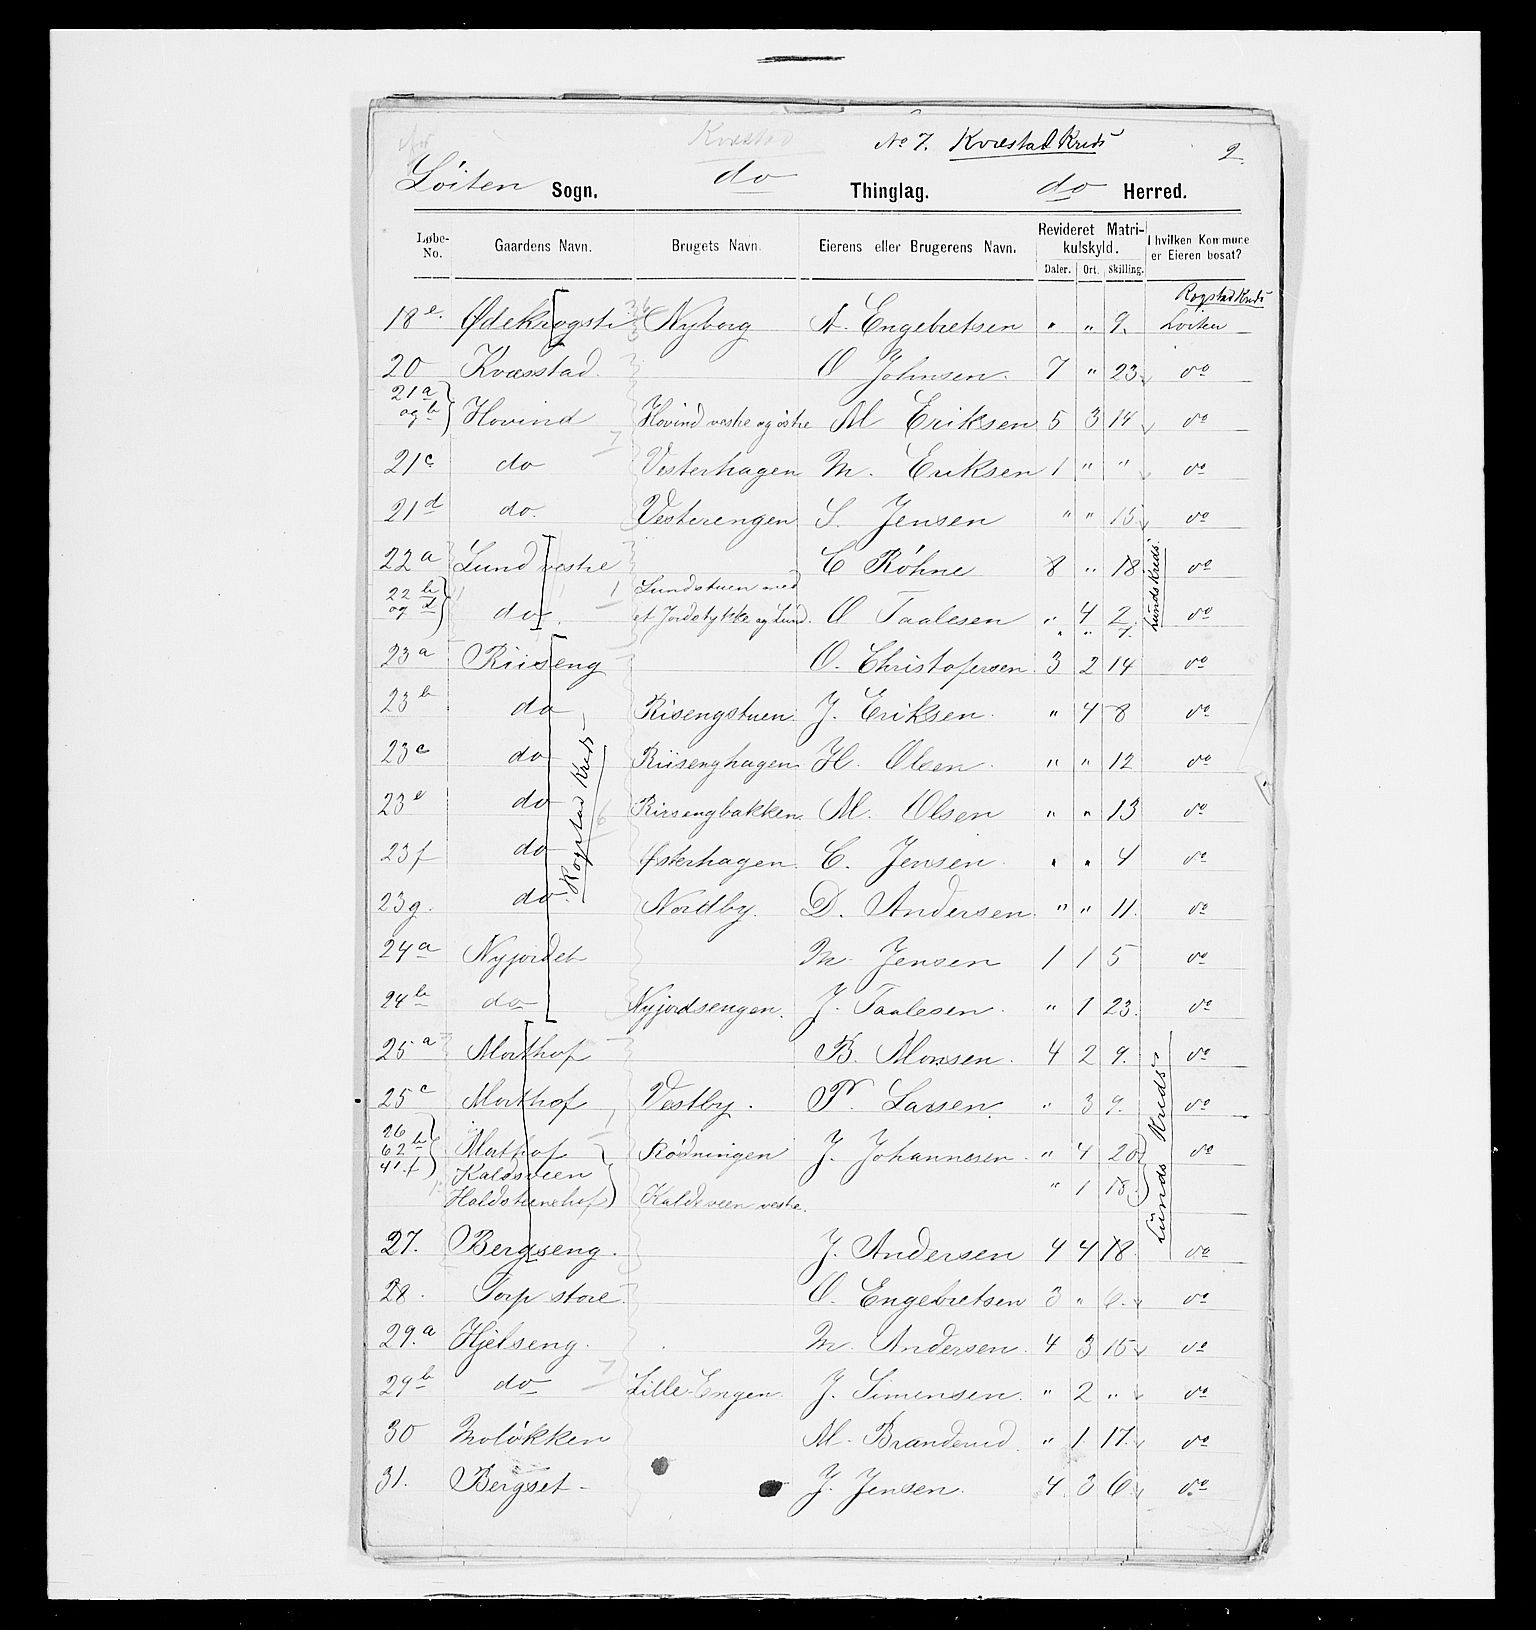 Kvæstad No 7. Kvæstad Kreds 2.
Löiten Sogn. do Thinglag. do Herred.
Løbe-No. Gaardens Navn. Brugets Navn. Eierens eller Brugerens Navn. Revideret Matrikulskyld. Daler. Ort. Skilling. I hvilken Kommune er Eieren bosat?
Rogstad Kreds
18e. Ødekrogsti Nyborg A. Engebretsen " " 9. Loiten
20 Kvæsstad. O Johnsen. 7 " 23. do
21a og b Hovind Hovind vestre og östre M Eriksen 5 3 14 do
21c do Vesterhagen M. Eriksen 1 " " do
21d do. Vesterengen S. Jensen " " 15 do
22a Lund vestre C Röhne 8 " 18 do
22b og d do Lundstuen med et Jordstykke og Lund. O Taalesen " 4 2. do
" " 7.
Lunds Kreds.
23a Riiseng O. Christofersen 3 2 14 do
23b do Risengstuen J. Eriksen. " 4 8 do
23c do Riisenghagen H. Olsen. " " 12 do
23e do Riisengbakken M. Olsen " " 13 do
23f do Østerhagen C. Jensen " " 4 do
23g. do. Nordby. D. Andersen " " 11. do
Rogstad Kreds
24a Nyjordet M. Jensen 1 1 5 do
24b do Nyjordsengen. J. Taalesen. " 1 23. do
25a Morthof B. Monsen. 4 2 9. do
25c Morthof Vestby. P. Larsen. " 3 9. do
26 62b 41f Morthof Rödningen J. Johannesen. " 4 20 do
Kaldsveen
Holdsteinshof Kaldsveen vestre. " 1 18.
Lunds Kreds
27. Bergseng. J. Andersen 4 4 18. do
28. Torp store O. Engebretsen 3 " 6. do
29.a Hjelseng. M. Andersen. 4 3 15 do
29b do Lille-Engen J. Simensen. " 2 " do
30 Moløkken M. Brænderud. " 1. 17. do
31. Bergset- J. Jensen. 4 3 6. do